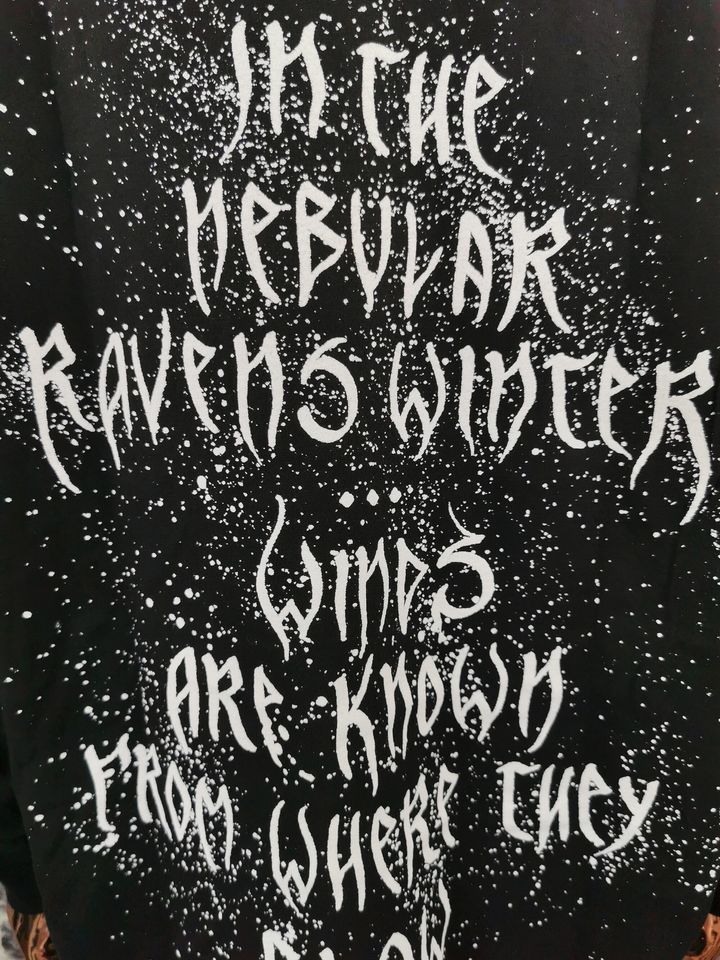 IN THE
NEBULAR
RAVENS WINTER
...
WINDS
ARE KNOWN
FROM WHERE THEY
BLOW